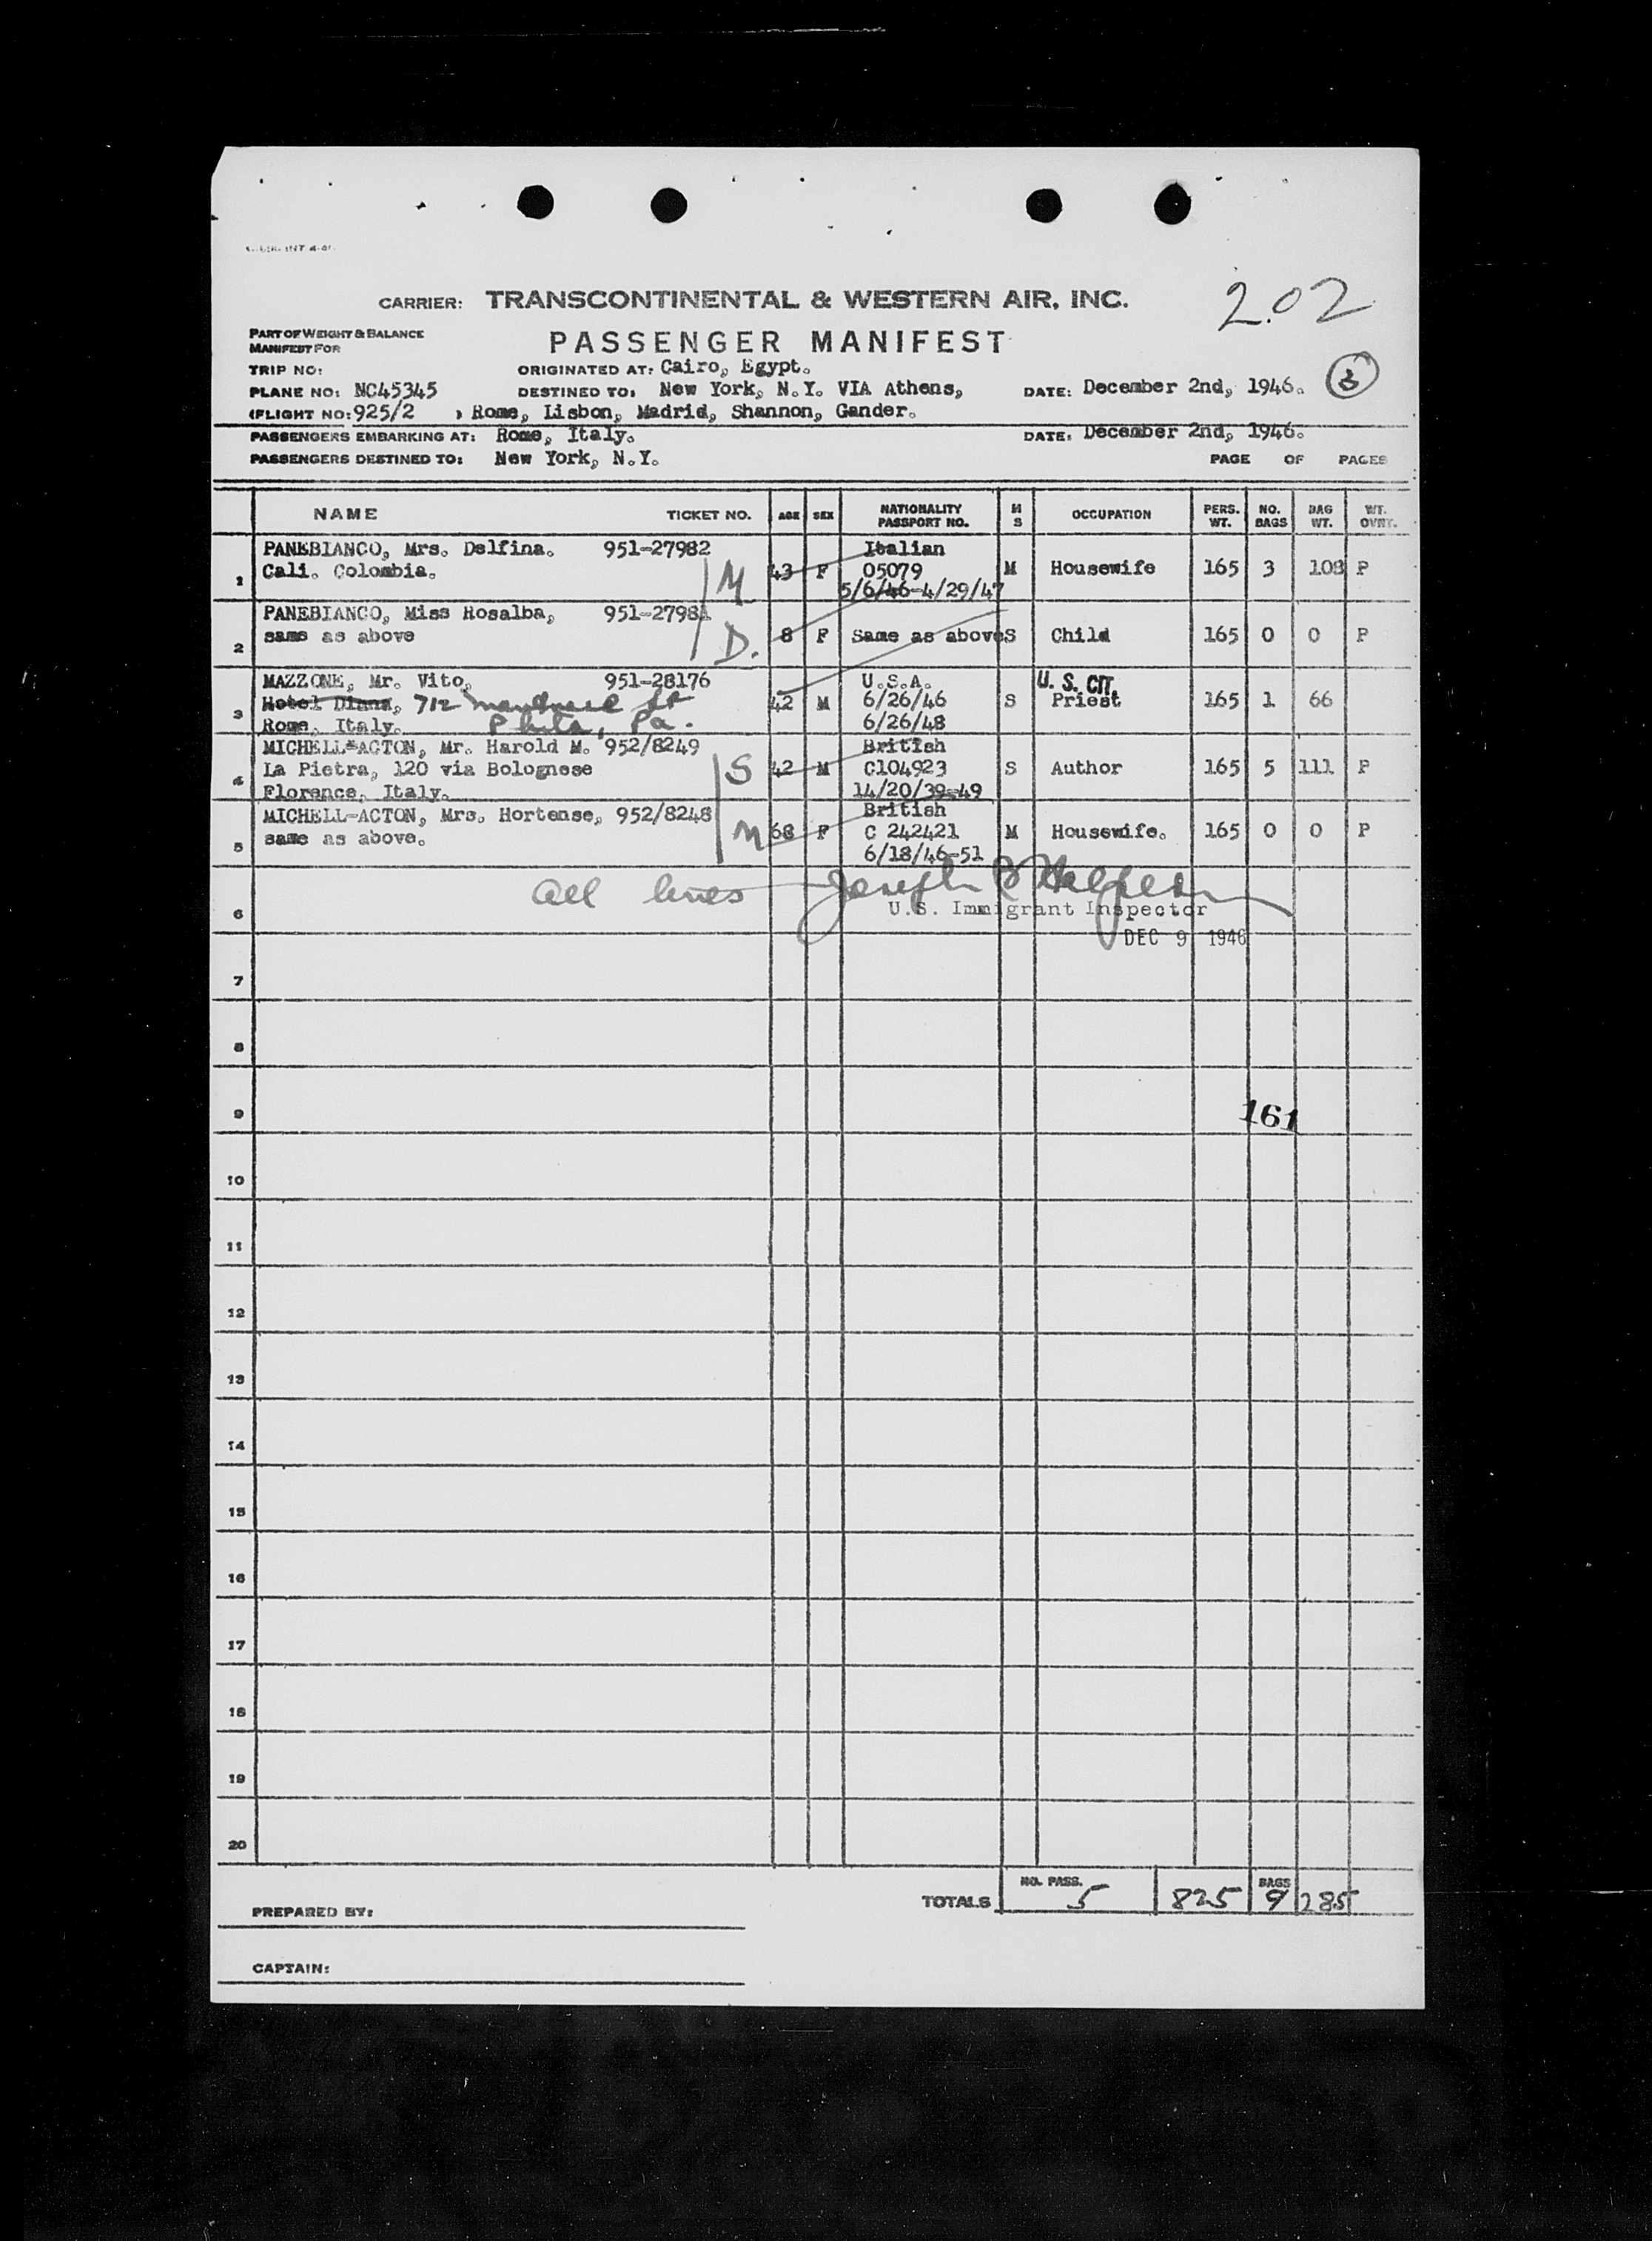 2.02
CARRIER: TRANSCONTINENTAL & WESTERN AIR, INC.
PART OF WEIGHT & BALANCE
MANIFEST FOR
PASSENGER MANIFEST
TRIP NO: ORIGINATED AT: Cairo, Egypt.
PLANE NO: NC45345 DESTINED TO: New York, N.Y. VIA Athens, DATE: December 2nd, 1946. 3
(FLIGHT NO: 925/2 ) Rome, Lisbon, Madrid, Shannon, Gander.
PASSENGERS EMBARKING AT: Rome, Italy. DATE: December 2nd, 1946.
PASSENGERS DESTINED TO: New York, N.Y. PAGE OF PAGES
NAME TICKET NO. AGE SEX NATIONALITY PASSPORT NO. M S OCCUPATION PERS. WT. NO. BAGS BAG WT. WT. OVRT.
PANEBIANCO, Mrs. Delfina. 951-27982 Italian
1 Cali. Colombia. M 43 F 05079 M Housewife 165 3 108 P
5/6/46-4/29/47
PANEBIANCO, Miss Rosalba, 951-27981
2 same as above D. 8 F Same as above S Child 165 0 0 P
MAZZONE, Mr. Vito, 951-28176 U.S.A. U. S. CIT.
3 Hotel Diana, 712 St 42 M 6/26/46 S Priest 165 1 66
Rome, Italy. Phila, Pa. 6/26/48
MICHELL-ACTON, Mr. Harold M. 952/8249 British
4 La Pietra, 120 via Bolognese S 42 M C104923 S Author 165 5 111 P
Florence, Italy. 14/20/39-49
MICHELL-ACTON, Mrs. Hortense, 952/8248 British
5 same as above. M 68 F C 242421 M Housewife. 165 0 0 P
6/18/46-51
All lines Joseph
6 U.S. Immigrant Inspector
DEC 9 1946
7
8
9 161
10
11
12
13
14
15
16
17
18
19
20
TOTALS NO. PASS. 5 825 BAGS 9 285
PREPARED BY:
CAPTAIN: